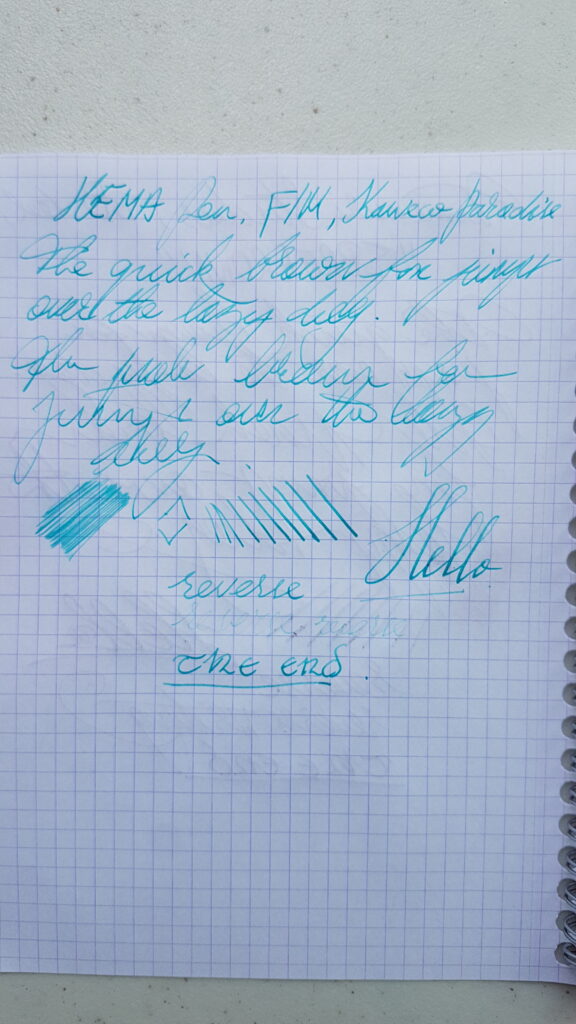 HEMA Pen, F/M, Kaweco Paradise
The quick brown fox jumps
over the lazy dog.
The quick brown fox
jumps over the lazy
dog.
Hello
reverse
the end.